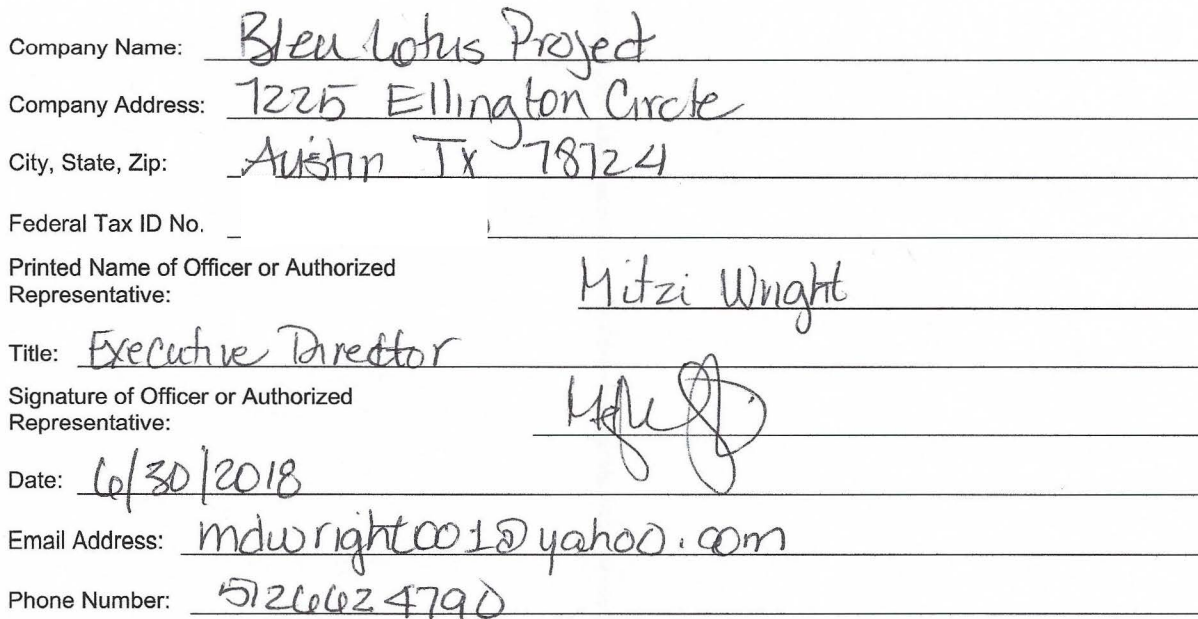 Company Name: Bleu Lotus Project
Company Address: 7225 Ellington Circle
City, State, Zip: Austin Tx 78724
Federal Tax ID No.
Printed Name of Officer or Authorized
Representative: Mitzi Wright
Title: Executive Director
Signature of Officer or Authorized
Representative:
Date: 6/30/2018
Email Address: mdwright001@yahoo.com
Phone Number: 5126624790